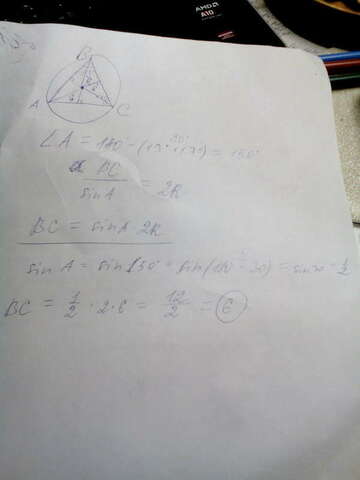 AMD
A10
B
A C
∠A = 180° - (13° + 17°) = 150°
30°
BC / sin A = 2R
BC = sin A 2R
sin A = sin 150° = sin (180° - 30) = sin 30 = 1/2
BC = 1/2 · 2 · 6 = 12/2 = 6